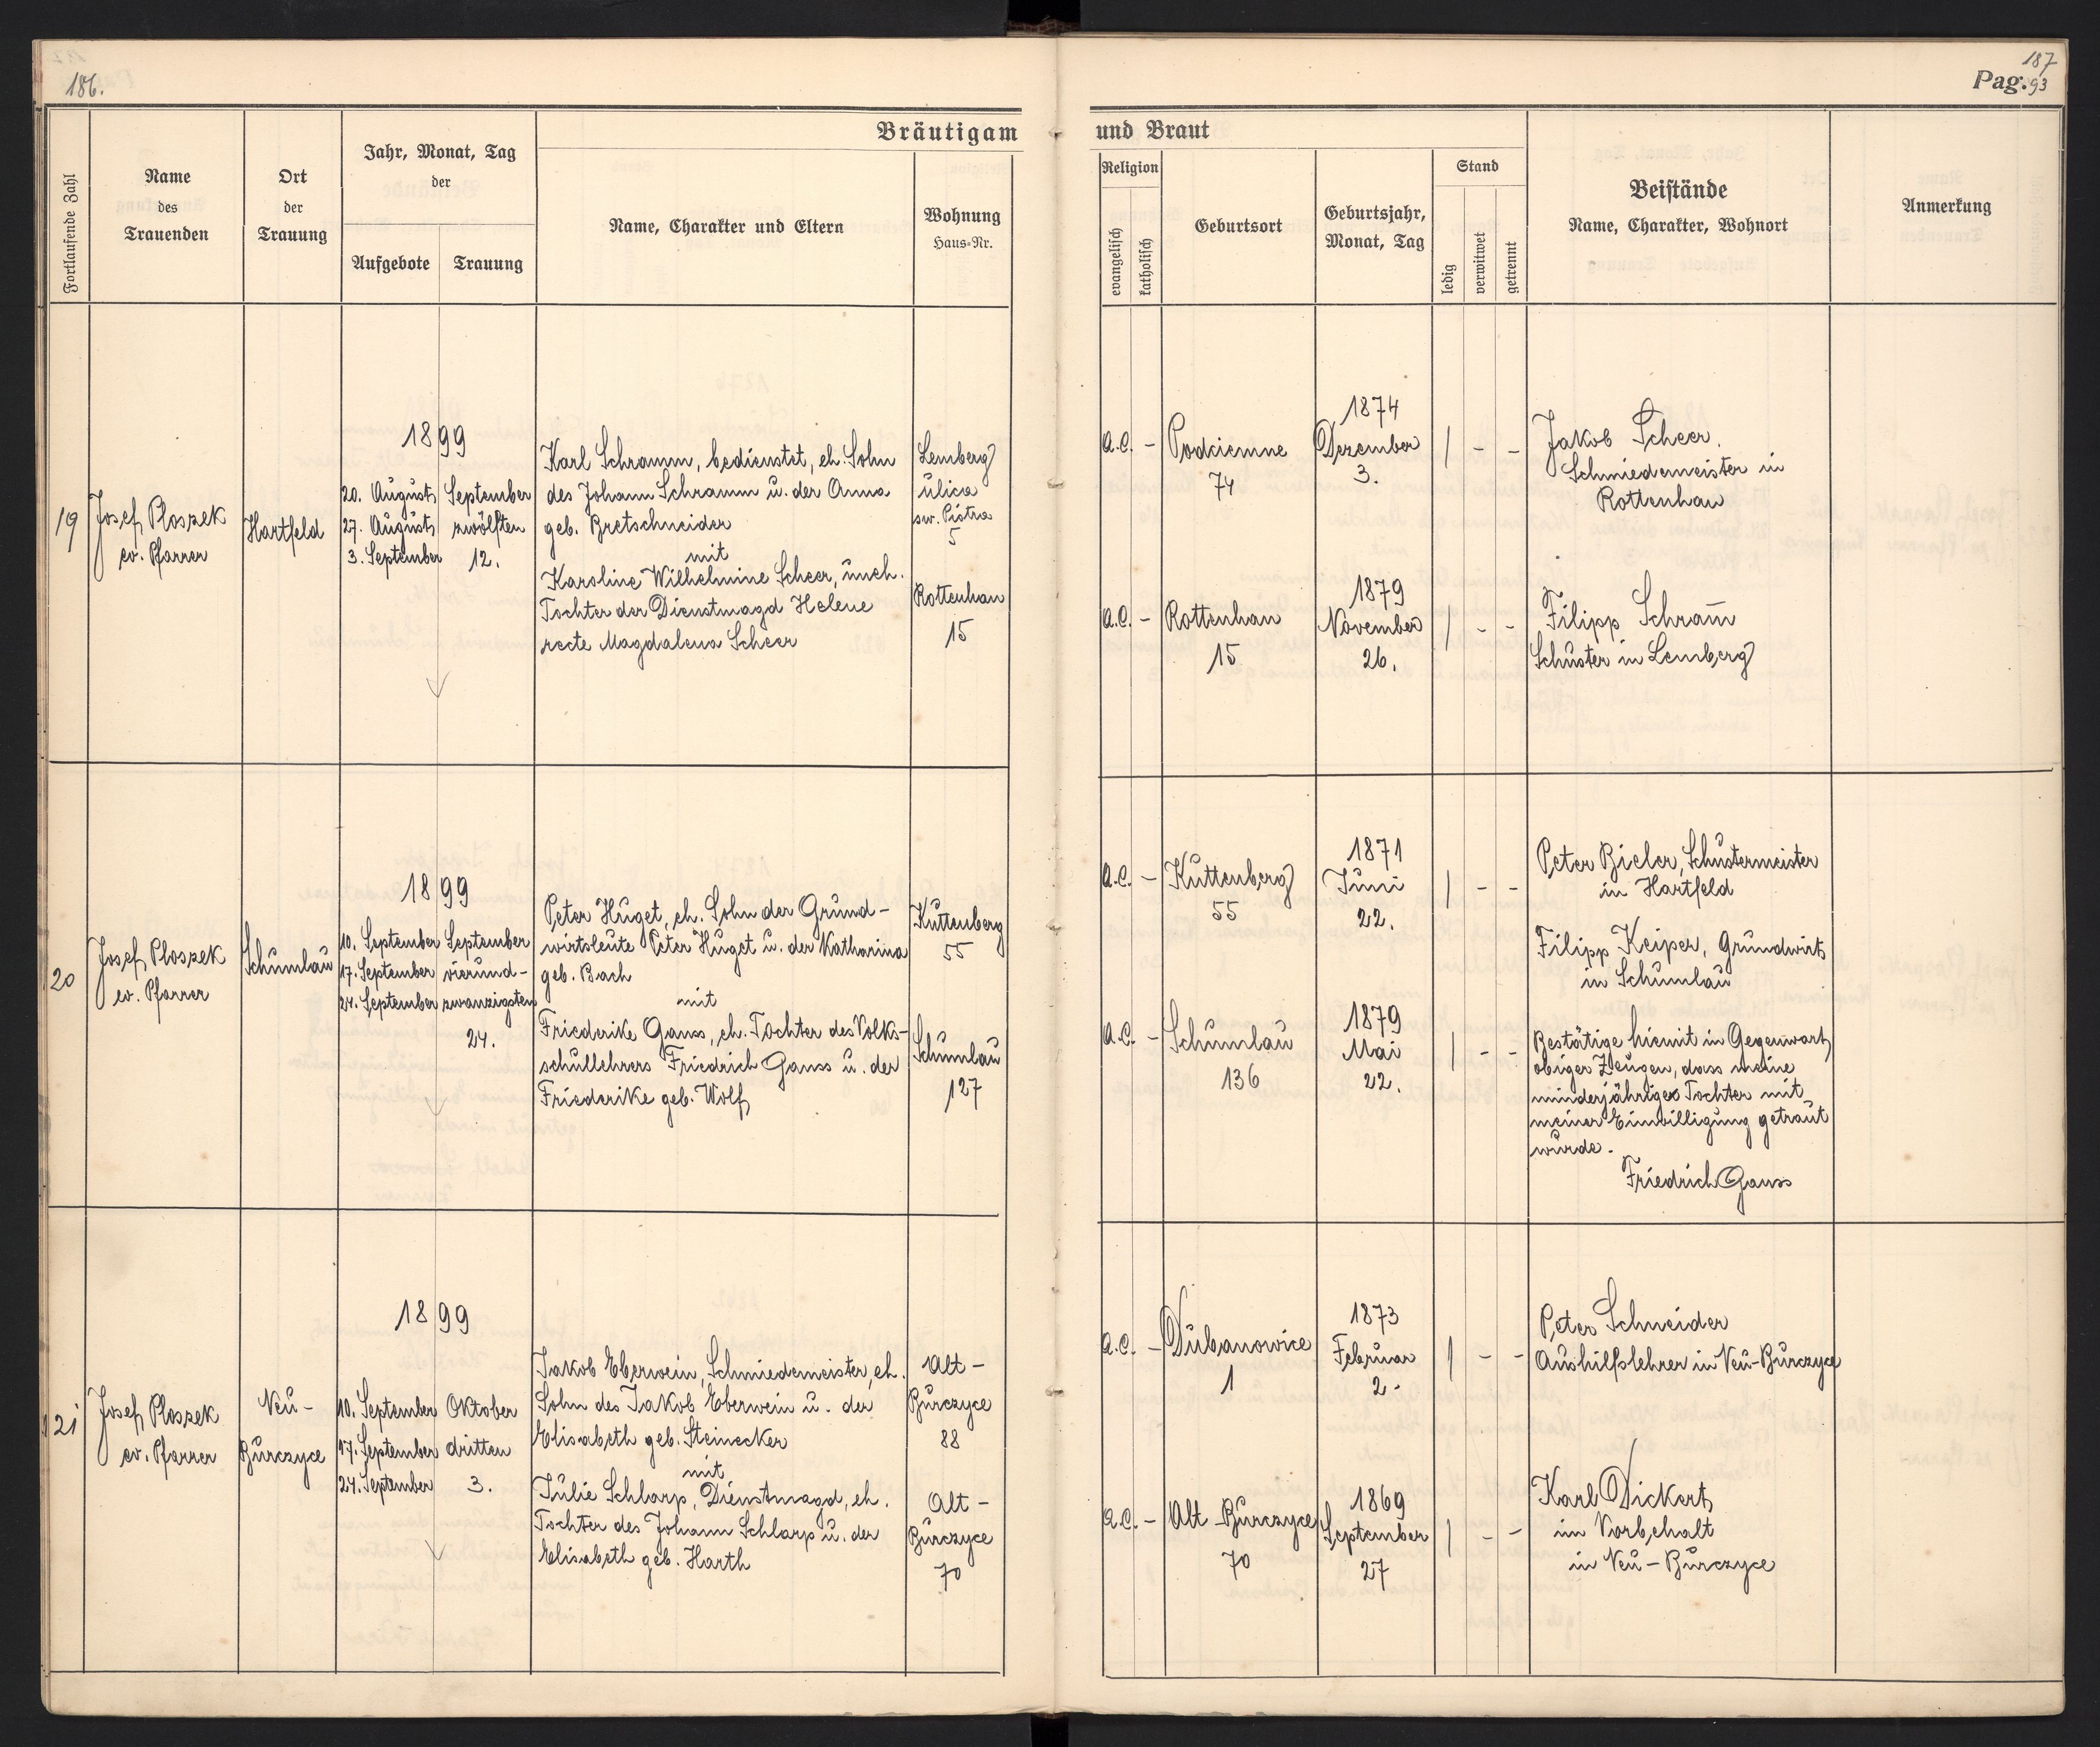 186.
187
Pag. 93
Bräutigam und Braut
Fortlaufende Zahl
Name
des
Trauenden
Ort
der
Trauung
Jahr, Monat, Tag
der
Aufgebote
Trauung
Name, Charakter und Eltern
Wohnung
Haus-Nr.
Religion
evangelisch
katholisch
Geburtsort
Geburtsjahr,
Monat, Tag
Stand
ledig
verwitwet
getrennt
Beistände
Name, Charakter, Wohnort
Anmerkung
19
Josef Ploszek
ev. Pfarrer
Hartfeld
1899
20. August
27. August
3. September
September
zwölften
12.
Karl Schramm, bedienstet, eh. Sohn
des Johann Schramm u. der Anna
geb. Bretschneider
mit
Karoline Wilhelmine Scheer, uneh.
Tochter der Dienstmagd Helene
recte Magdalena Scheer
Lemberg
ulica
sw. Piotra
5
Rottenhan
15
A.C. -
Podciemne
74
1874
Dezember
3.
| - -
Jakob Scheer,
Schmiedemeister in
Rottenhau
A.C. -
Rottenhan
15
1879
November
26.
| - -
Filipp Schram̅
Schuster in Lemberg
20
Josef Ploszek
ev. Pfarrer
Schumlau
1899
10. September
17. September
24. September
September
vierund-
zwanzigsten
24.
Peter Huget, eh. Sohn der Grund-
wirtsleute Peter Huget u. der Katharina
geb. Bach
mit
Friederike Gauss, eh. Tochter des Volks-
schullehrers Friedrich Gauss u. der
Friederike geb. Wolf
Kuttenberg
55
Schumlau
127
A.C. -
Kuttenberg
55
1871
Juni
22.
| - -
Peter Bieler, Schustermeister
in Hartfeld
Filipp Keiper, Grundwirt
in Schumlau
A.C. -
Schumlau
136
1879
Mai
22.
| - -
Bestätige hiemit in Gegenwart
obiger Zeugen, dass meine
minderjährige Tochter mit
meiner Einwilligung getraut
wurde.
Friedrich Gauss
21
Josef Ploszek
ev. Pfarrer
Neu-
Burczyce
1899
10. September
17. September
24. September
Oktober
dritten
3.
Jakob Eberwein, Schmiedemeister, eh.
Sohn des Jakob Eberwein u. der
Elisabeth geb. Steinecker
mit
Julie Schlarp, Dienstmagd, eh.
Tochter des Johann Schlarp u. der
Elisabeth geb. Harth
Alt-
Burczyce
88
Alt-
Burczyce
70
A.C. -
Dubanowice
1
1873
Februar
2.
| - -
Peter Schneider
Aushilfslehrer in Neu-Burczyce
A.C. -
Alt-Burczyce
70
1869
September
27
| - -
Karl Dickert
im Vorbehalt
in Neu-Burczyce